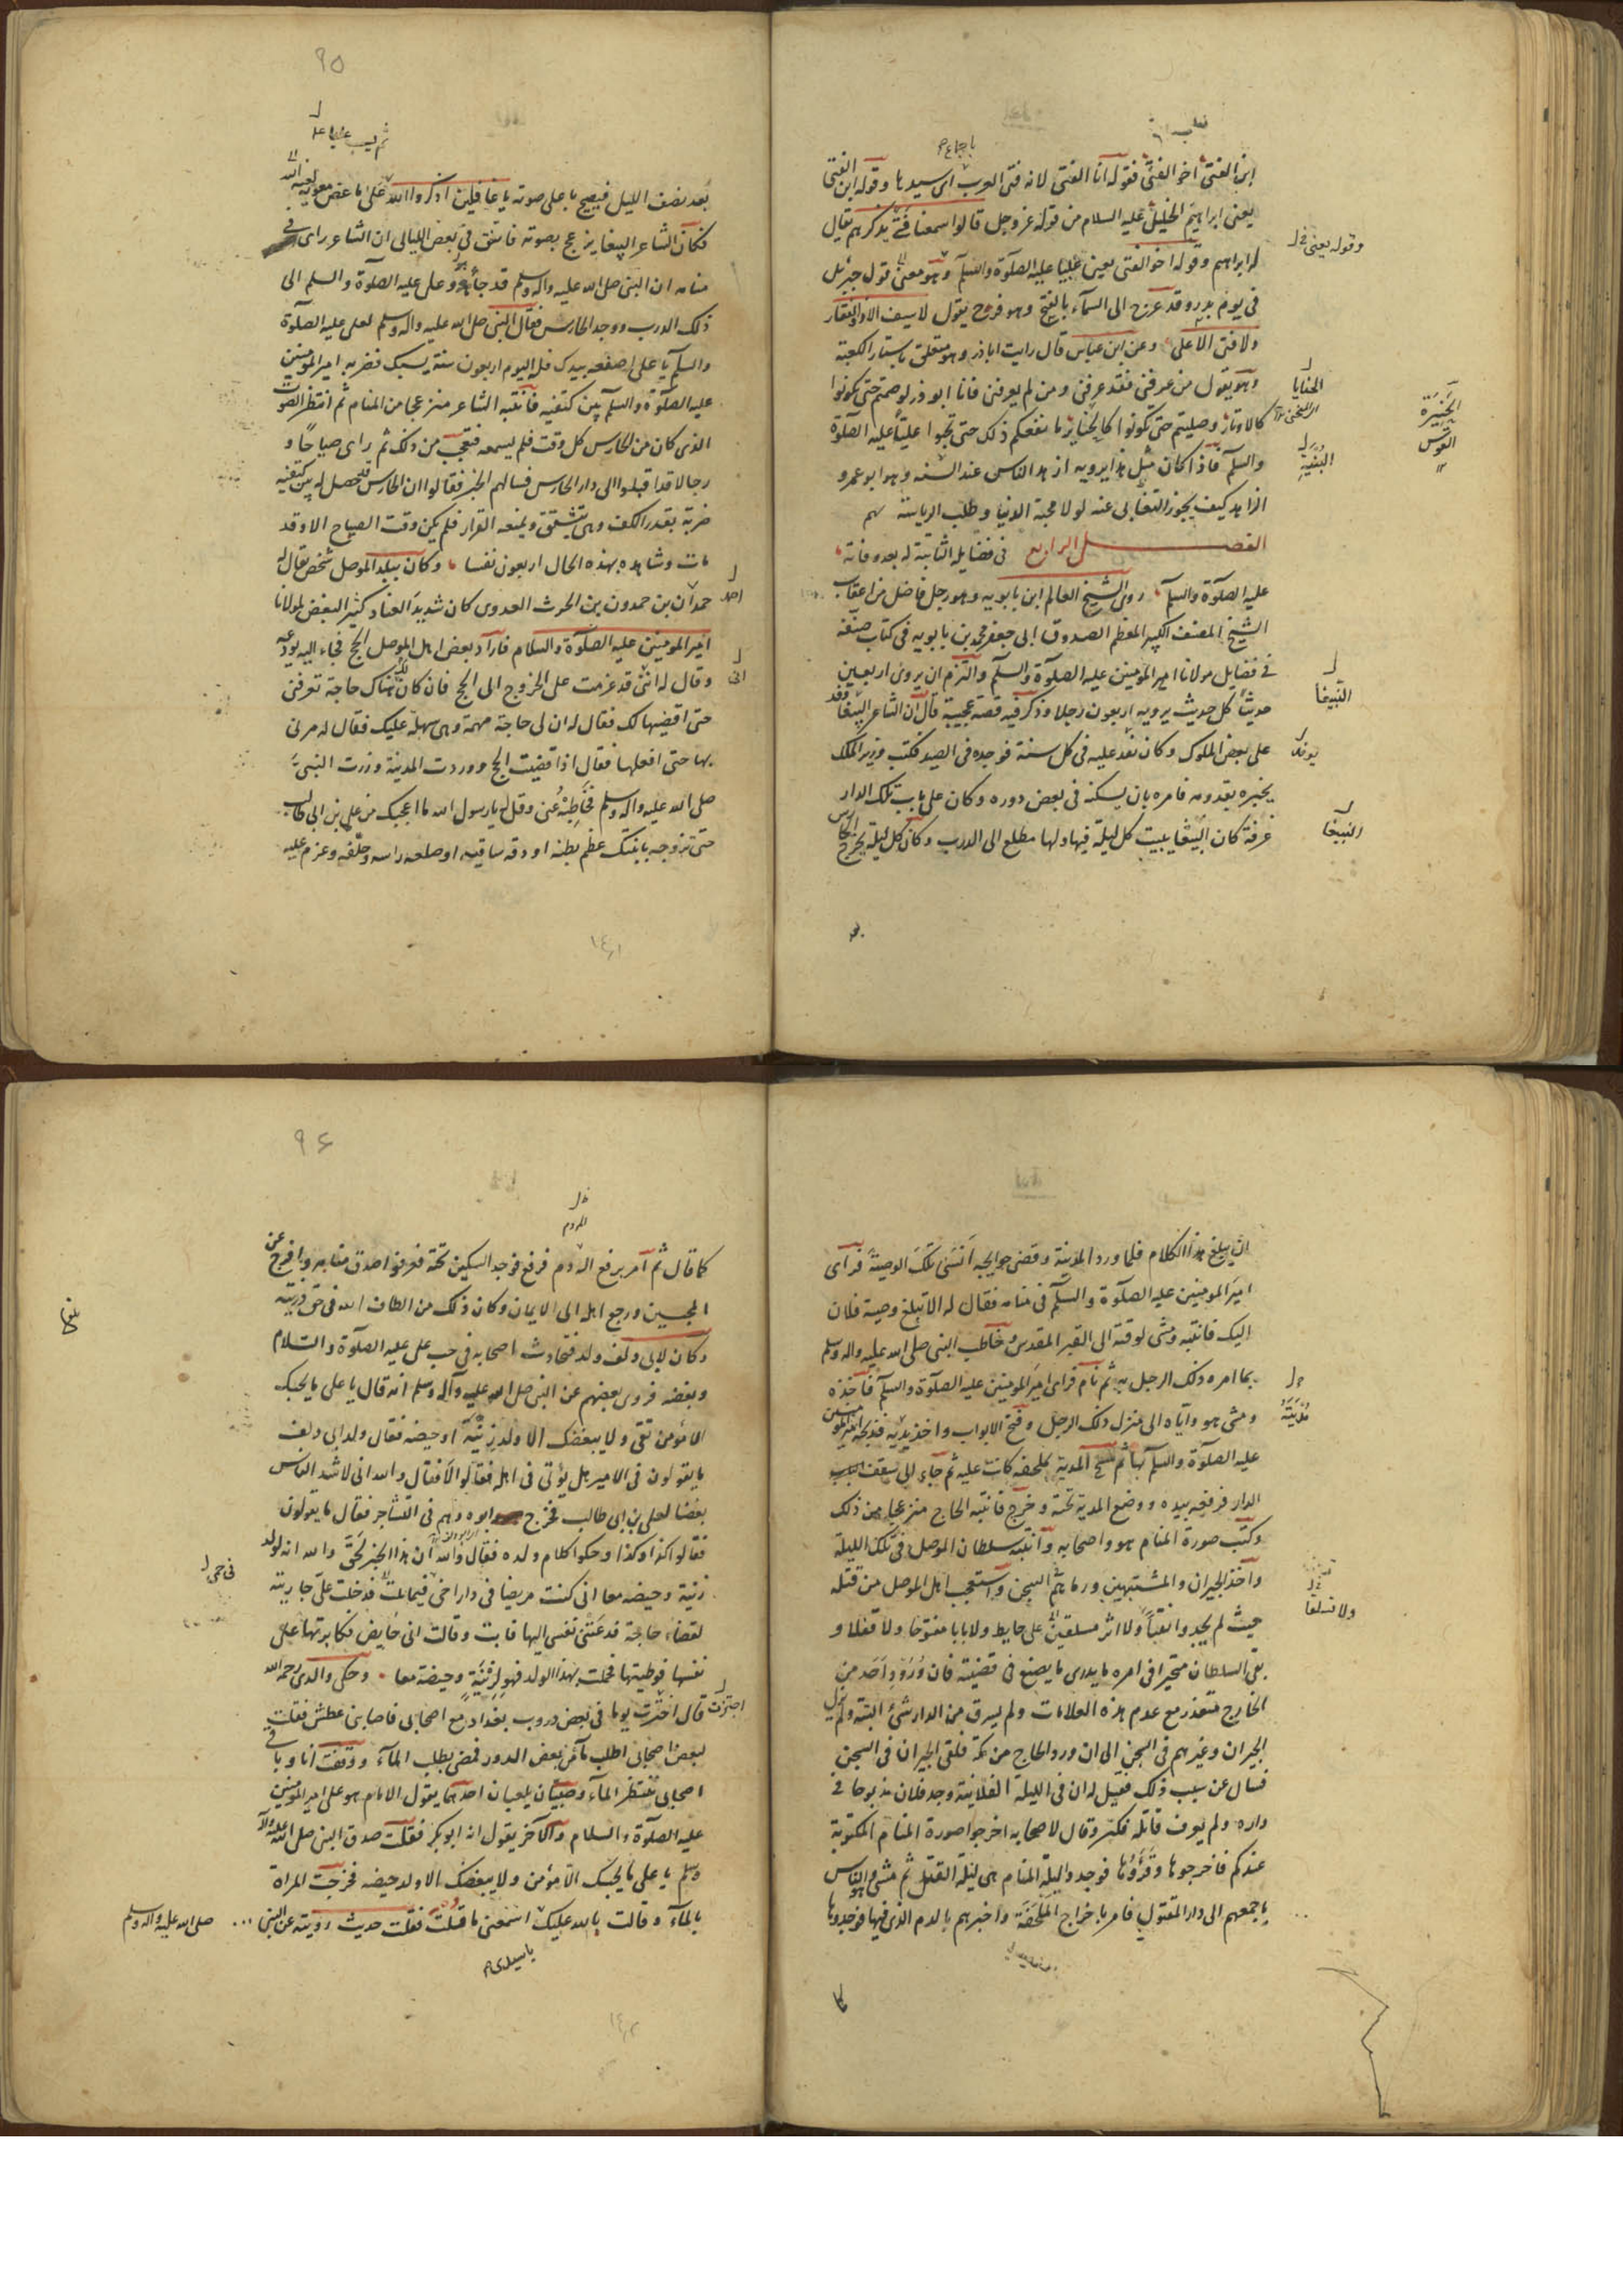 ابن الفتى اخو الفتى فقوله انا الفتى لانه فتى العرب اى سيدها وقوله ابن الفتى
يعنى ابراهيم الخليل عليه السلام من قوله عز وجل قالوا سمعنا فتى يذكرهم يقال
له ابراهيم وقوله اخو الفتى يعنى عليا عليه الصلوة والسلم وهو معنى قول جبرئيل
فى يوم بدر وقد عرج الى السمآء بالفتح وهو فرح يقول لا سيف الا ذو الفقار
ولا فتى الا على وعن ابن عباس قال رايت اباذر وهو متعلق باستار الكعبة
وهو يقول من عرفنى فقد عرفنى ومن لم يعرفنى فانا ابو ذر لو صمتم حتى تكونوا
كالاوتار وصليتم حتى تكونوا كالحنايز ما نفعكم ذلك حتى تحبوا عليا عليه الصلوة
والسلم فاذا كان مثل هذا يرويه ازهد الناس عند السنه وهو ابو عمرو
الزاهد كيف يجوز التغابى عنه لولا محبة الدنيا وطلب الرياسة
الفصل الرابع فى فضايله الثابتة له بعد وفاته
عليه الصلوة والسلم روى الشيخ العالم ابن بابويه وهو رجل فاضل من اعقاب
الشيخ المصنف الكبير المعظم الصدوق ابى جعفر محمد بن بابويه فى كتاب صنفه
فى فضايل مولانا امير المؤمنين عليه الصلوة والسلم والتزم ان يروى اربعين
حديثا كل حديث يرويه اربعون رجلا وذكر فيه قصة عجيبة قال ان الشاعر الببغا وفد
على بعض الملوك وكان يفد عليه فى كل سنة فوجده فى الصيد فكتب وزير الملك
يخبره بقدومه فامره بان يسكنه فى بعض دوره وكان على باب تلك الدار
غرفة كان الببغا يبيت كل ليلة فيها ولها مطلع الى الدرب وكان كل ليلة يخرج الحارس
باجماع
وقوله يعنى
الحنايا
الحنيرة
القوس
الببغا
يوفد
الببغا
٩٥
بعد نصف الليل فيصيح باعلى صوته يا غافلين اذكروا الله على باغض معوية لعنة الله
فكان الشاعر الببغا ينزعج بصوته فاتفق فى بعض الليالى ان الشاعر راى فى
منامه ان النبى صلى الله عليه واله وسلم قد جاء هو وعلى عليه الصلوة والسلم الى
ذلك الدرب ووجد الحارس فقال النبى صلى الله عليه واله وسلم لعلى عليه الصلوة
والسلم يا على اصفعه بيدك فله اليوم اربعون سنة يسبك فضربه امير المؤمنين
عليه الصلوة والسلم بين كتفيه فانتبه الشاعر منزعجا من المنام ثم انتظر الصوت
الذى كان من الحارس كل وقت فلم يسمعه فتعجب من ذلك ثم راى صياحا و
رجالا قد اقبلوا الى دار الحارس فسالهم الخبر فقالوا ان الحارس قد حصل له بين كتفيه
ضربة بقدر الكف وهى تشقق ويمنعه القرار فلم يكن وقت الصباح الا وقد
مات وشاهده بهذه الحال اربعون نفسا وكان ببلد الموصل شخص يقال له
حمدان بن حمدون بن الحرث العدوى كان شديد العناد كثير البغض لمولانا
امير المومنين عليه الصلوة والسلام فاراد بعض اهل الموصل الحج فجاء اليه يودعه
وقال له اننى قد عزمت على الخروج الى الحج فان كان لك هناك حاجة تعرفنى
حتى اقضيها لك فقال له ان لى حاجة مهمة وهى سهلة عليك فقال له مرنى
بها حتى افعلها فقال اذا قضيت الحج ووردت المدينة وزرت النبى
صلى الله عليه واله وسلم فخاطبه عنى وقل له يا رسول الله ما اعجبك من على بن ابى طالب
حتى تزوجه بابنتك عظم بطنه او دقه ساقيه او صلعه راسه وحلفه وعزم عليه
احمد
انى
ان يبلغ هذا الكلام فلما ورد المدينة وقضى حوايجه انسى تلك الوصية فراى
امير المومنين عليه الصلوة والسلم فى منامه فقال له الا تبلغ وصية فلان
اليك فانتبه ومشى لوقته الى القبر المقدس وخاطب النبى صلى الله عليه واله وسلم
بما امره ذلك الرجل به ثم نام فراى امير المومنين عليه الصلوة والسلم فاخذه
ومشى هو واياه الى منزل ذلك الرجل وفتح الابواب واخذ مدية فذبحه امير المؤمنين
عليه الصلوة والسلم بها ثم مسح المدية بملحفه كانت عليه ثم جاء الى سقف باب
الدار فرفعه بيده ووضع المدية تحته وخرج فانتبه الحاج منزعجا من ذلك
وكتب صورة المنام هو واصحابه وانتبه سلطان الموصل فى تلك الليلة
واخذ الجيران والمشتبهين ورماهم السجن واستعجب اهل الموصل من قتله
حيث لم يجدوا نقبا ولا اثر تسلق على حايط ولا بابا مفتوحا ولا قفلا و
بقى السلطان متحيرا فى امره ما يدرى ما يصنع فى قضيته فان ورود احد من
الخارج متعذر مع عدم هذه العلامات ولم يسرق من الدار شئ البتة ولم يزل
الجيران وغيرهم فى السجن الى ان ورد الحاج من مكة فلقى الجيران فى السجن
فسال عن سبب ذلك فقيل له ان فى الليلة الفلانية وجد فلان مذبوحا فى
داره ولم يعرف قاتله فكبر وقال لاصحابه اخرجوا صورة المنام المكتوبة
عندكم فاخرجوها وقرؤها فوجدوا ليلة المنام هى ليلة القتل ثم مشى هو والناس
باجمعهم الى دار المقتول فامر باخراج الملحفة واخبرهم بالدم الذى فيها فوجدوها
مدية
٩٦
كما قال ثم امر برفع الردم فرفع فوجد السكين تحته فعرفوا صدق منامه وافرج عن
المحبسين ورجع اهله الى الايمان وكان ذلك من الطاف الله فى حق ذريته
وكان لابى دلف ولد فتحادث اصحابه فى حب على عليه الصلوة والسلام
وبغضه فروى بعضهم عن النبى صلى الله عليه وآله وسلم انه قال يا على ما يحبك
الا مؤمن تقى ولا يبغضك الا ولد زنية او حيضة فقال ولد ابى دلف
ما يقولون فى الامير هل يؤتى فى اهله فقالوا لا فقال والله انى لاشد الناس
بغضا لعلى بن ابى طالب فخرج ابوه وهم فى التشاجر فقال ما يقولون
فقالوا كذا وكذا وحكوا كلام ولده فقال والله ان هذا الخبر لحق والله انه لولد
زنية وحيضه معا انى كنت مريضا فى دار اخى فتمايلت فدخلت على جارية
لقضاء حاجة فدعتنى نفسى اليها فابت وقالت انى حايض فكابرتها على
نفسها فوطيتها فحملت بهذا الولد فهو لزنية وحيضة معا وحكى والدى رحمه الله
قال اجتزت يوما فى بعض دروب بغداد مع اصحابى فاصابنى عطش فقلت
لبعض اصحابى اطلب مآء من بعض الدور فمضى يطلب المآء ووقفت انا وباقى
اصحابى ننتظر المآء وصبيان يلعبان احدهما يقول الامام هو على امير المؤمنين
عليه الصلوة والسلام والآخر يقول انه ابو بكر فقلت صدق النبى صلى الله عليه وآله
وسلم يا على ما يحبك الا مؤمن ولا يبغضك الا ولد حيضه فخرجت المراة
بالمآء وقالت بالله عليك اسمعنى ما قلت فقلت حديث رويته عن النبى ... صلى الله عليه واله وسلم
يا سيدى
اجتزت